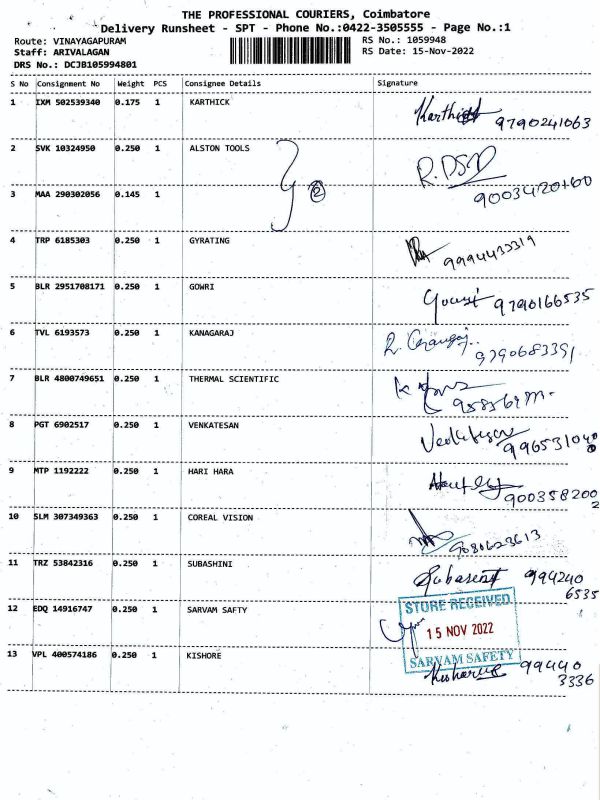 THE PROFESSIONAL COURIERS, Coimbatore
Delivery Runsheet - SPT - Phone No.:0422-3505555 - Page No.:1
Route: VINAYAGAPURAM RS No.: 1059948
Staff: ARIVALAGAN RS Date: 15-Nov-2022
DRS No.: DCJB105994801
S No Consignment No Weight PCS Consignee Details Signature
1 IXM 502539340 0.175 1 KARTHICK Karthick 9790241063
2 SVK 10324950 0.250 1 ALSTON TOOLS R.DSD
2 9003420460
3 MAA 290302056 0.145 1
4 TRP 6185303 0.250 1 GYRATING 9994433319
5 BLR 2951708171 0.250 1 GOWRI Gowri 9790166535
6 TVL 6193573 0.250 1 KANAGARAJ R. Canagaraj 9790683391
7 BLR 4800749651 0.250 1 THERMAL SCIENTIFIC
8 PGT 6902517 0.250 1 VENKATESAN Venkatesan
9 MTP 1192222 0.250 1 HARI HARA 9003582002
10 SLM 307349363 0.250 1 COREAL VISION 9080623613
11 TRZ 53842316 0.250 1 SUBASHINI 994240
6535
12 EDQ 14916747 0.250 1 SARVAM SAFTY STORE RECEIVED
15 NOV 2022
SARVAM SAFETY
13 VPL 400574186 0.250 1 KISHORE 99440
3336